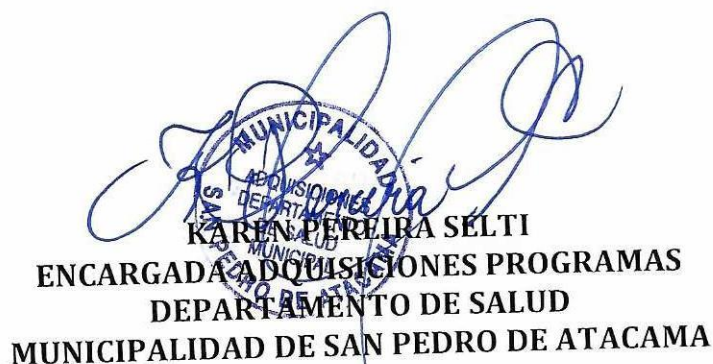 MUNICIPALIDAD
ADQUISICIONES
DEPARTAMENTO
DE SALUD
MUNICIPAL
SAN PEDRO DE ATACAMA
KAREN PEREIRA SELTI
ENCARGADA ADQUISICIONES PROGRAMAS
DEPARTAMENTO DE SALUD
MUNICIPALIDAD DE SAN PEDRO DE ATACAMA